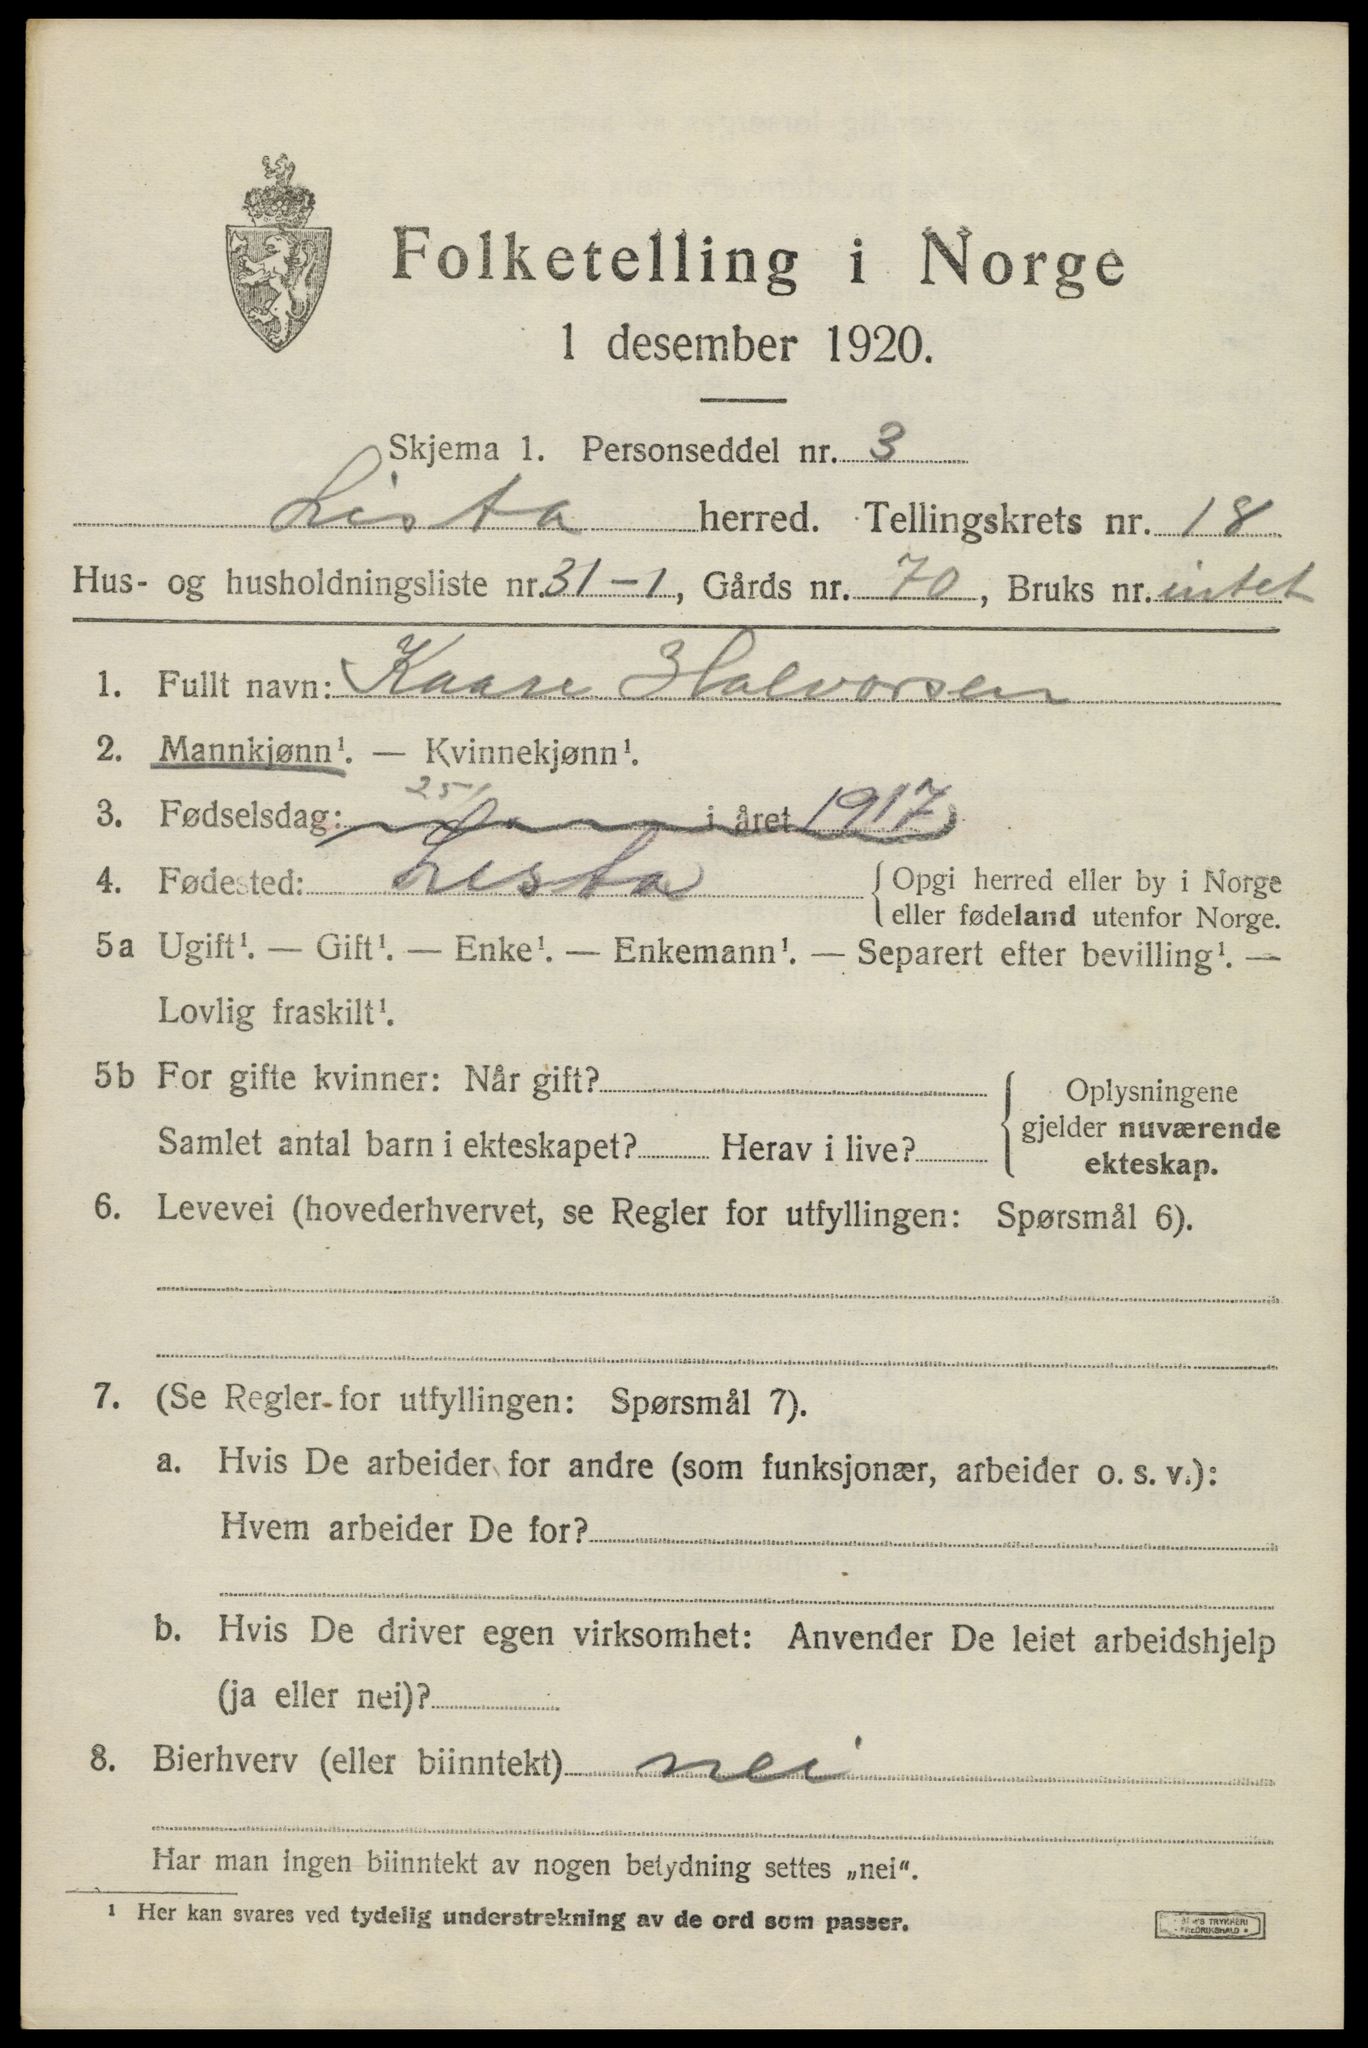 Folketelling i Norge
1 desember 1920.
Skjema 1. Personseddel nr. 3
Lista herred. Tellingskrets nr. 18
Hus- og husholdningsliste nr. 31-1, Gårds nr. 70, Bruks nr. intet
1. Fullt navn: Kaare Halvorsen
2. Mannkjønn¹. — Kvinnekjønn¹.
3. Fødselsdag: 25/ i året 1917
4. Fødested: Lista {Opgi herred eller by i Norge
eller fødeland utenfor Norge.
5a Ugift¹. — Gift¹. — Enke¹. — Enkemann¹. — Separert efter bevilling¹. —
Lovlig fraskilt¹.
5b For gifte kvinner: Når gift?
Samlet antal barn i ekteskapet? Herav i live?
{Oplysningene
gjelder nuværende
ekteskap.
6. Levevei (hovederhvervet, se Regler for utfyllingen: Spørsmål 6).
7. (Se Regler for utfyllingen: Spørsmål 7).
a. Hvis De arbeider for andre (som funksjonær, arbeider o. s. v.):
Hvem arbeider De for?
b. Hvis De driver egen virksomhet: Anvender De leiet arbeidshjelp
(ja eller nei)?
8. Bierhverv (eller biinntekt) nei
Har man ingen biinntekt av nogen betydning settes „nei“.
¹ Her kan svares ved tydelig understrekning av de ord som passer.
TRYKKERI
FREDRIKSHALD